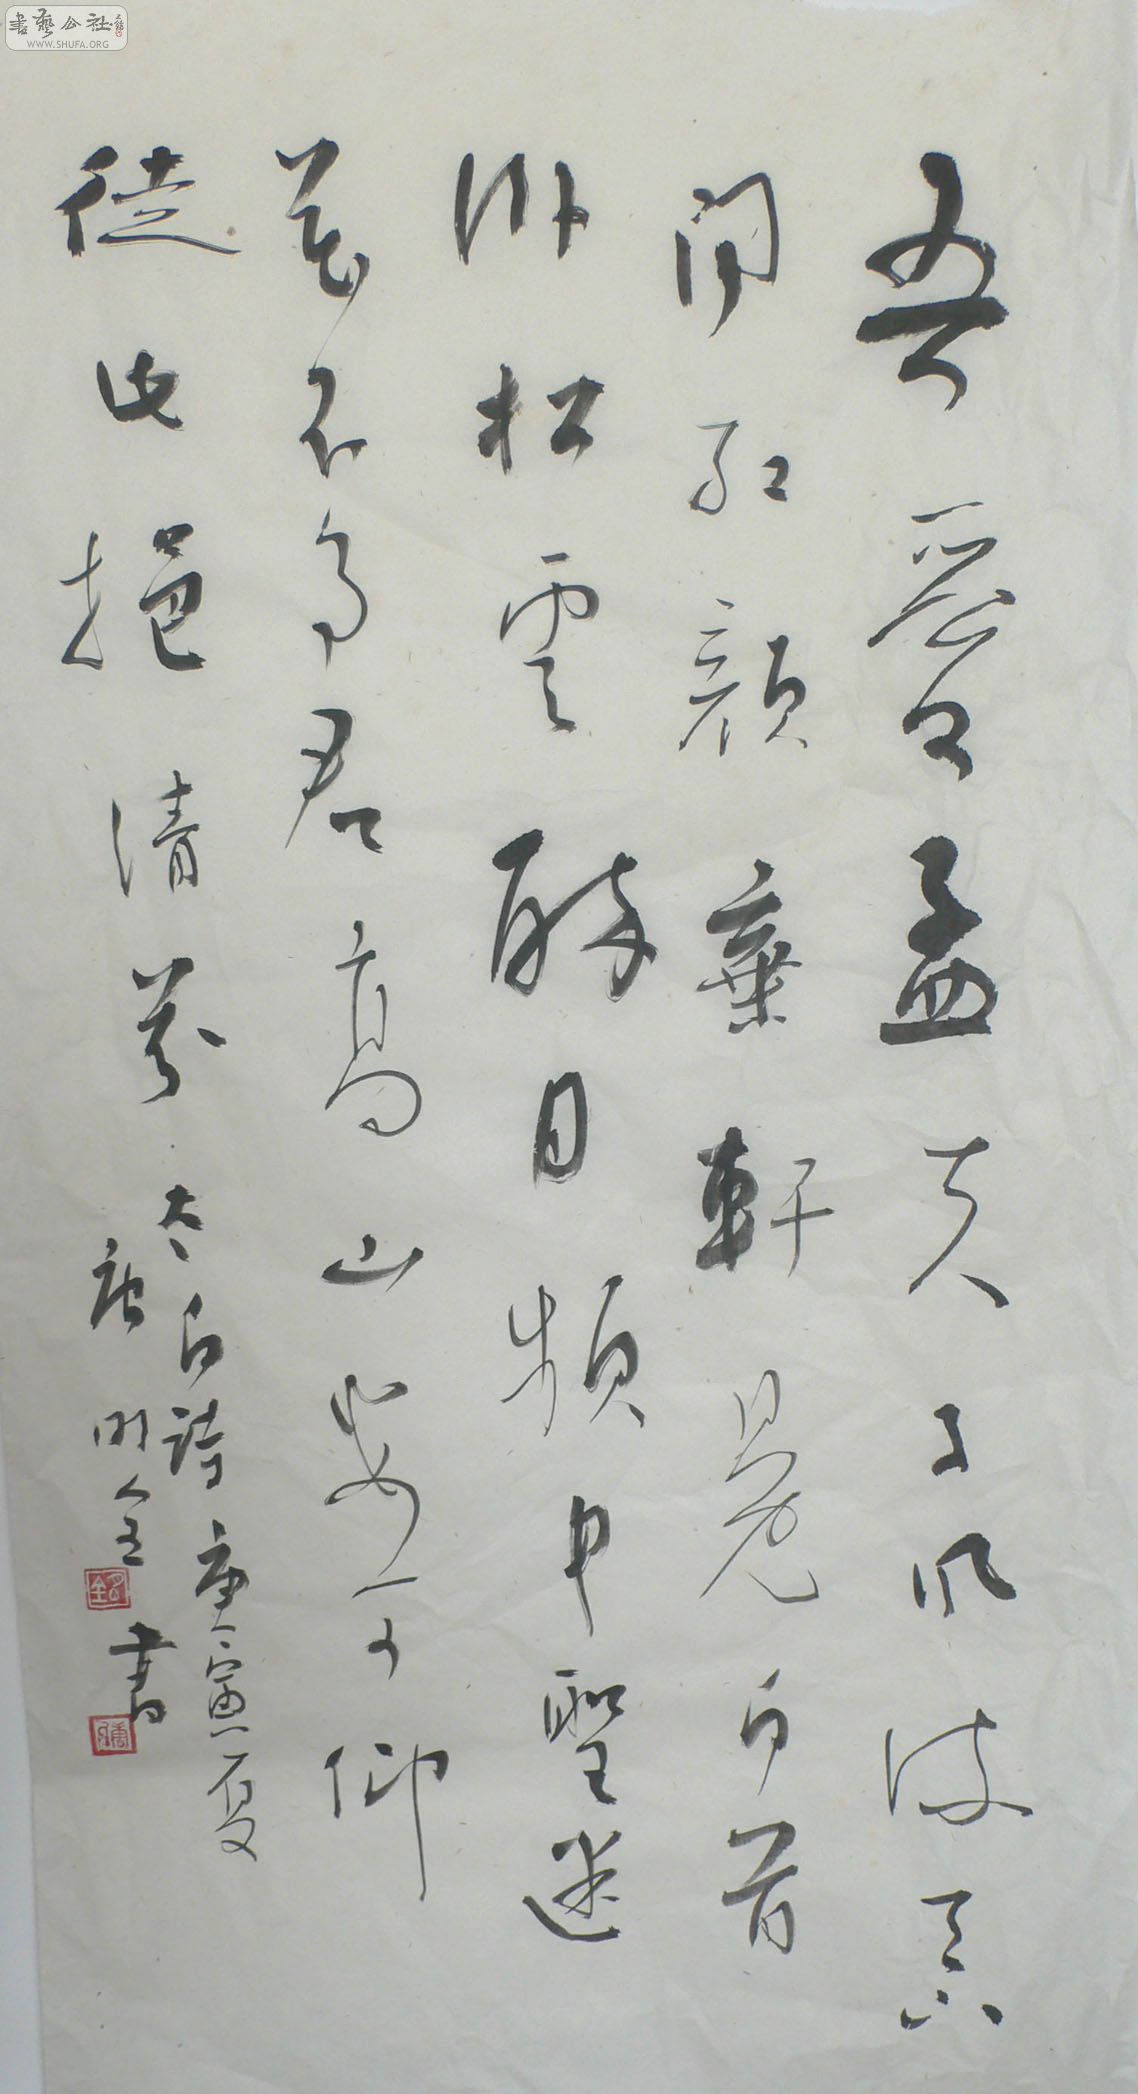 吾爱孟夫子風流天下
聞紅顔棄軒冕白首
卧松雲醉月頻中聖迷
花不事君高山安可仰
徒此挹清芬
太白詩庚寅夏
唐明全書
書藝公社
WWW.SHUFA.ORG